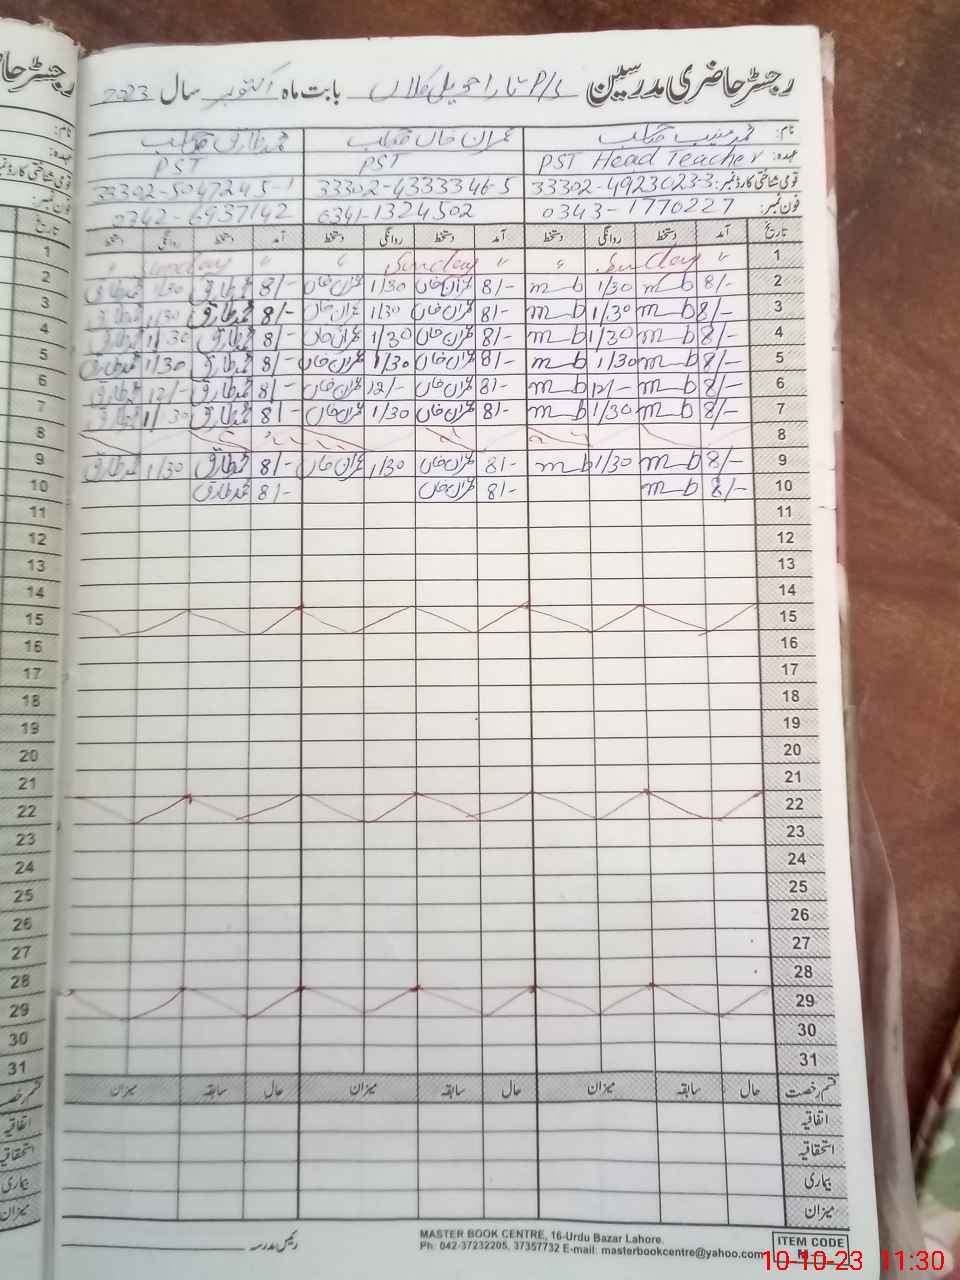 رجسٹر حاضری مدرسین P/S تارا حویلی کلاں بابت ماہ اکتوبر سال 2023
نام: محمد منیب صاحب عمران خاں صاحب محمد طارق صاحب
عہدہ: PST Head Teacher PST PST
قومی شناختی کارڈ نمبر: 33302-4923023-3 33302-4333346-5 33302-5047245-1
فون نمبر: 0343-1770227 0341-1324502 0342-6937142
تاریخ آمد دستخط روانگی دستخط آمد دستخط روانگی دستخط آمد دستخط روانگی دستخط تاریخ
1 " Sunday " " Sunday " " Sunday " 1
2 8/- m_b 1/30 m_b 8/- عمران خاں 1/30 عمران خاں 8/- محمد طارق 1/30 محمد طارق 2
3 8/- m_b 1/30 m_b 8/- عمران خاں 1/30 عمران خاں 8/- محمد طارق 1/30 محمد طارق 3
4 8/- m_b 1/30 m_b 8/- عمران خاں 1/30 عمران خاں 8/- محمد طارق 1/30 محمد طارق 4
5 8/- m_b 1/30 m_b 8/- عمران خاں 1/30 عمران خاں 8/- محمد طارق 1/30 محمد طارق 5
6 8/- m_b 12/- m_b 8/- عمران خاں 12/- عمران خاں 8/- محمد طارق 12/- محمد طارق 6
7 8/- m_b 1/30 m_b 8/- عمران خاں 1/30 عمران خاں 8/- محمد طارق 1/30 محمد طارق 7
8 8
9 8/- m_b 1/30 m_b 8/- عمران خاں 1/30 عمران خاں 8/- محمد طارق 1/30 محمد طارق 9
10 8/- m_b 8/- عمران خاں 8/- محمد طارق 10
11 11
12 12
13 13
14 14
15 15
16 16
17 17
18 18
19 19
20 20
21 21
22 22
23 23
24 24
25 25
26 26
27 27
28 28
29 29
30 30
31 31
قسم رخصت حال سابقہ میزان حال سابقہ میزان حال سابقہ میزان قسم رخصت
اتفاقیہ اتفاقیہ
استحقاقیہ استحقاقیہ
بیماری بیماری
میزان میزان
رئیس مدرسہ
MASTER BOOK CENTRE, 16-Urdu Bazar Lahore.
Ph: 042-37232205, 37357732 E-mail: masterbookcentre@yahoo.com
ITEM CODE
10-10-23 11:30